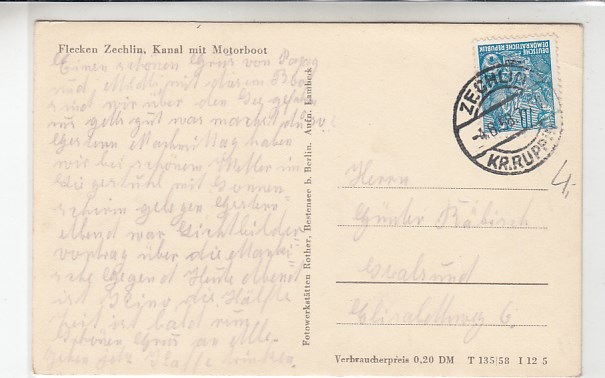 Flecken Zechlin, Kanal mit Motorboot
Einen schönen Gruß von Papa
und Mutti mit diesem Boot
sind wir über den See gefahren
uns geht gut was machst du
Gestern Nachmittag haben
wir bei schönem Wetter im
Liegestuhl mit Sonnen
schein gelegen Gestern
Abend war Lichtbilder
vortrag über die Märki
sche Gegend Heute Abend
ist Kino die Hälfte
Zeit ist bald rum
schönen Gruß an alle
Kaffee trinken
Fotowerkstätten Rother, Bestensee b. Berlin. Aufn. Lambeck
DEUTSCHE DEMOKRATISCHE REPUBLIK
ZECHLIN
KR. RUPPIN
Herrn
Günter
Stralsund
Elisabethweg 6.
4,-
Verbraucherpreis 0,20 DM T 135/58 I 12 5